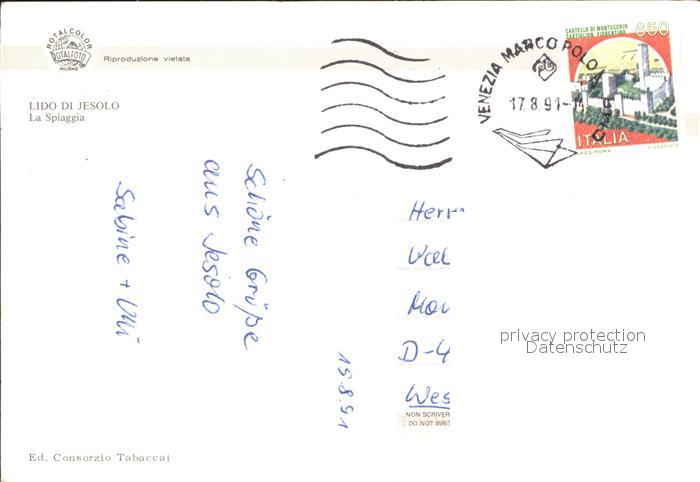 ROTALCOLOR
ROTALFOTO
MILANO
Riproduzione vietata
LIDO DI JESOLO
La Spiaggia
Schöne Grüße
aus Jesolo
Sabine + Ulli
15.8.91
VENEZIA MARCO POLO
17.8.91-14
CASTELLO DI MONTECCHIO
CASTIGLION FIORENTINO
650
ITALIA
I.P.Z.S.-ROMA
Herr
D-4
Wes
NON SCRIVER
DO NOT WRIT
privacy protection
Datenschutz
Ed. Consorzio Tabaccai